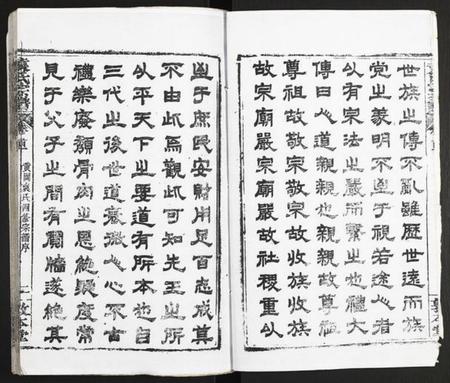 世族之傳不亂雖歷世遠而族
黨之義明不至于視若途人者
以有宗法之嚴而繫之也禮大
傳曰人道親親也親親故尊祖
尊祖故敬宗敬宗故收族收族
故宗廟嚴宗廟嚴故社稷重以
至于庶民安財用足百志成莫
不由此爲觀此可知先王之所
以平天下之要道有所本也自
三代之後世道衰微人心不古
禮樂廢頹骨肉之恩絕疑常
見于父子之間有鬩牆遂絕其
黃岡袁氏四修宗譜序
一
敦本堂